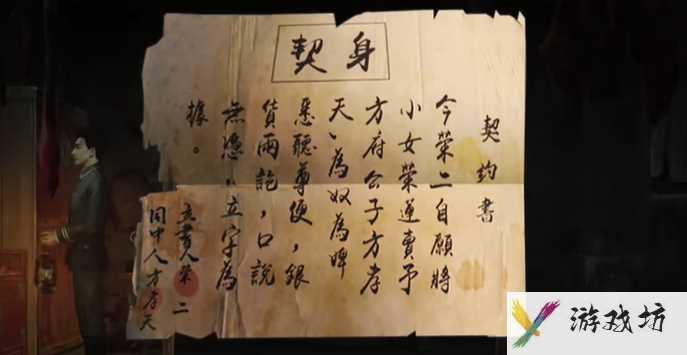 身契
契約書
今榮二自願將
小女榮蓮賣予
方府公子方孝
天,為奴為婢
悉聽尊便,銀
貨兩訖,口說
無憑,立字為
據。
立書人榮二
同中人方孝天
游戏坊